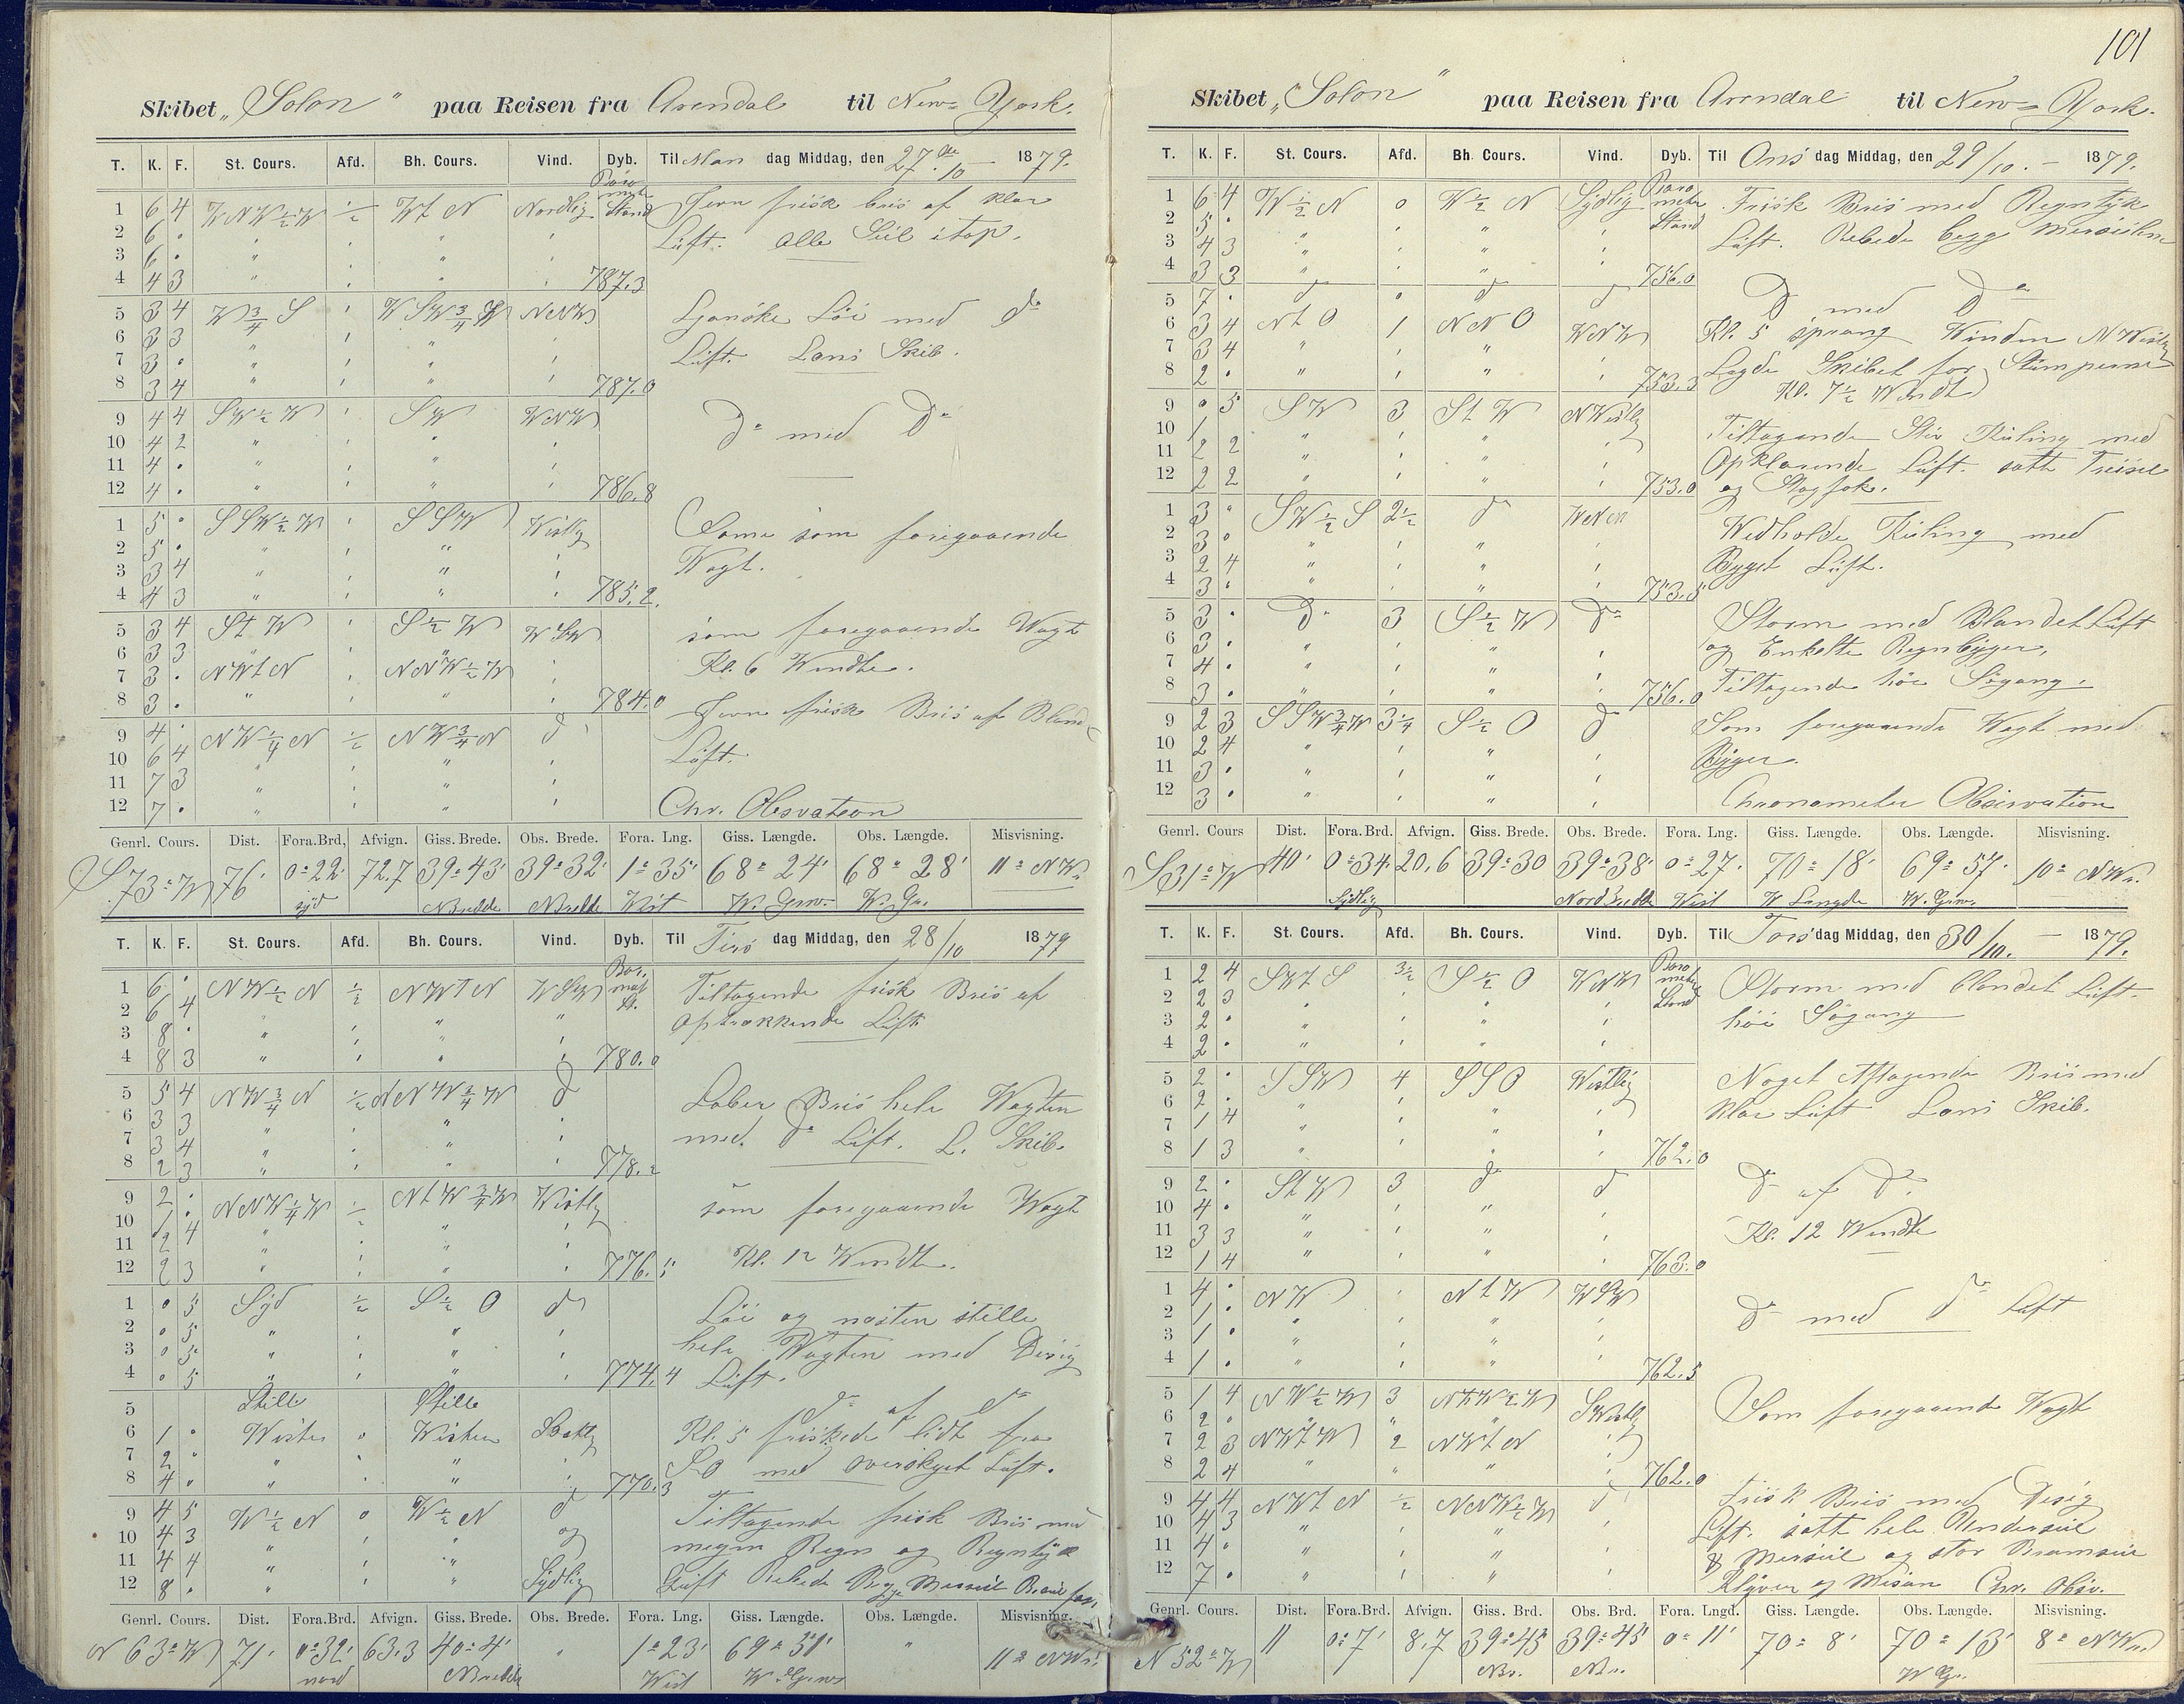 101
Skibet „Solon“ paa Reisen fra Arendal til New-York.
T. K. F. St. Cours. Afd. Bh. Cours. Vind. Dyb. Til Man dag Middag, den 27de/10 — 1879.
1 6 4 WNW½W ½ WtN Nordlig Barometer Stand Jevn frisk bris af klar
2 6 . " ' " ' Luft. Alle Seil itop.
3 6 . " ' " '
4 4 3 " ' " ' 787.3
5 3 4 W¾S ' WSW¾W NNW Ganske Löi med do
6 3 3 " ' " '
7 3 . " ' " ' Luft. Lens Skib.
8 3 4 " ' " ' 787.0
9 4 4 SW½W ' SW WNW do med do
10 4 2 " ' " '
11 4 . " ' " '
12 4 . " ' " ' 786.8
1 5 . SSW½W ' SSW Westlig Samme som foregaaende
2 5 . " ' " '
3 3 4 " ' " ' Vagt.
4 4 3 " ' " ' 785.2.
5 3 4 StW ' S½W WSW som foregaaende Vagt
6 3 3 " ' " ' Kl. 6 Vendte.
7 3 . NWtN ' NNW½W '
8 3 . " ' " ' 784.0 Jevn frisk Bris af Bland.
9 4 . NW¼N ½ NW¾N do
10 6 4 " ' " ' Luft.
11 7 3 " ' " '
12 7 . " ' " ' Chr. Obsvation
Genrl. Cours. Dist. Fora.Brd. Afvign. Giss. Brede. Obs. Brede. Fora. Lng. Giss. Længde. Obs. Længde. Misvisning.
S 73° W 76' 0°22' 72.7 39°43' 39°32' 1°35' 68°24' 68°28' 11° NW.
syd NBredde NBredde West W. Grw. W. Gr.
T. K. F. St. Cours. Afd. Bh. Cours. Vind. Dyb. Til Tirs dag Middag, den 28/10 1879
1 6 . NW½N ½ NWtN WSW Tiltagende frisk Bris af
2 6 4 " ' " " optrækkende Luft
3 8 . " ' " '
4 8 3 " ' " ' 780.0
5 5 4 NW¾N ½ NNW¾W do Laber Bris hele Vagten
6 3 3 " ' " '
7 3 4 " ' " ' med do Luft. L. Skib.
8 2 3 " ' " ' 778.2
9 2 . NNW¼W ½ NtW¾W Westlig som foregaaende Vagt
10 1 4 " ' " '
11 2 4 " ' " '
12 2 3 " ' " ' 776.5 Kl. 12 Vendte.
1 . 5 Syd ½ S½O do Löi og næsten stille
2 . 5 " ' " ' hele Vagten med Disig
3 . 5 " ' " '
4 . 5 " ' " ' 774.4 Luft.
5 Stille Stille do af do
6 1 . Westen . Westen Kl. 5 friskede lidt fra
7 2 . " ' " SO med overskyet Luft.
8 4 . " ' " ' 770.3
9 4 5 W½N . W½N do Tiltagende frisk Bris med
10 4 3 " ' " og megen Regn og Regntyk
11 4 4 " ' "
12 8 . " ' " Sydlig Luft Rebede Begge Mersseil
Genrl. Cours. Dist. Fora.Brd. Afvign. Giss. Brede. Obs. Brede. Fora. Lng. Giss. Længde. Obs. Længde. Misvisning.
N 63° W 71' 0°32' 63.3 40°4' " 1°23' 69°51' " 11° NW.
nord NBredde West W. Grw
Skibet „Solon“ paa Reisen fra Arendal til New-York.
T. K. F. St. Cours. Afd. Bh. Cours. Vind. Dyb. Til Ons dag Middag, den 29/10. — 1879.
1 6 4 W½N 0 W½N Sydlig Barometer Stand Frisk Bris med Regntyk
2 5 . " ' " '
3 4 3 " ' " ' Luft. Rebede begge Mersseilene
4 3 3 " ' " ' 756.0
5 7 . do . do do do med do
6 3 4 NtO 1 NNO WNW Kl. 5 sprang Vinden NWestlig
7 3 4 " ' " ' Lagde Skibet for Stumperne
8 2 . " ' " ' 753.3 Kl. 7½ Vendte
9 . 5 SW 3 StW NWestlig
10 1 " ' " ' Tiltagende Stiv Kuling med
11 2 2 " ' " ' Opklarende Luft. satte
12 2 2 " ' " ' 753.0 og Stagfok.
1 3 " SW½S 2½ do WNW
2 3 . " ' " ' Vedholde Kuling med
3 2 4 " ' " ' Byget Luft.
4 3 . " ' " ' 753.5
5 3 . do 3 S½W do Storm med Blandet Luft
6 3 . " ' " ' og Enkelte Regnbyger,
7 4 . " ' " '
8 3 . " ' " ' 756.0 Tiltagende höi Sögang.
9 2 3 SSW¾W 3¼ S½O do Som foregaaende Vagt med
10 2 4 " ' " '
11 3 . " ' " ' Byger.
12 3 . " ' " ' Chronometer Observation
Genrl. Cours Dist. Fora.Brd. Afvign. Giss. Brede. Obs. Brede. Fora. Lng. Giss. Længde. Obs. Længde. Misvisning.
S 31° W 40' 0°34 20,6 39°30 39°38' 0°27' 70°18' 69°57' 10° NW.
Sydlig Nord Bredde West W Længde W. Grw.
T. K. F. St. Cours. Afd. Bh. Cours. Vind. Dyb. Til Tors dag Middag, den 30/10. — 1879.
1 2 4 SWtS 3½ S½O WNW Barometer Stand Storm med blandet Luft
2 2 3 " ' " '
3 2 . " ' " ' höi Sögang
4 2 . " ' " '
5 2 . SSW 4 SSO Westlig Noget Aftagende Bris med
6 2 . " ' " ' klar Luft Lens Skib.
7 1 4 " ' " '
8 1 3 " ' " ' 762.0
9 2 . StW 3 do do do af do
10 4 . " ' " '
11 3 3 " ' " ' Kl. 12 Vendte
12 1 4 " ' " ' 763.0
1 4 . NW ' NtW WSW
2 1 . " ' " ' do med do Luft
3 1 . " ' " '
4 1 . " ' " ' 762.5
5 1 4 NW½W 3 SWestlig Som foregaaende Vagt
6 2 " " " "
7 2 3 NWtW 2 NWtN '
8 2 4 " " " ' 762.0
9 4 4 NWtN ½ NNW½W do Frisk Bris med Disig
10 4 3 " ' " ' Luft. satte hele Underseil
11 4 . " ' " ' & Merseil og stor Bramseil
12 7 . " ' " ' Klyver og Mesan Chr. Obsv.
Genrl. Cours. Dist. Fora.Brd. Afvign. Giss. Brd. Obs. Brd. Fora. Lngd. Giss. Længde. Obs. Længde. Misvisning.
N 52° W 11 0°7' 8,7 39°45 39°45' 0°11' 70°8' 70°13' 8° NW.
NBr. NBr. W Gr.